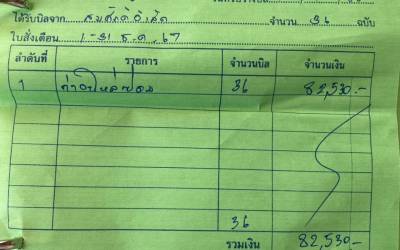 ได้รับบิลจาก สมศักดิ์อำเด็ด จำนวน 36 ฉบับ
ใบสั่งเดือน 1-31 ธ.ค. 67
ลำดับที่ รายการ จำนวนบิล จำนวนเงิน
1 36 82,530.-
36
รวมเงิน 82,530.-